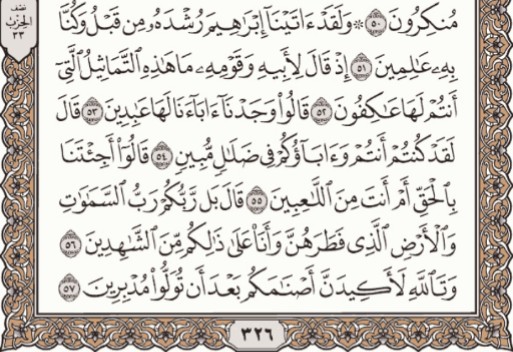 نصف
الحزب
٣٣
مُنكِرُونَ ٥٠ ۞ وَلَقَدْ ءَاتَيْنَآ إِبْرَٰهِيمَ رُشْدَهُۥ مِن قَبْلُ وَكُنَّا
بِهِۦ عَٰلِمِينَ ٥١ إِذْ قَالَ لِأَبِيهِ وَقَوْمِهِۦ مَا هَٰذِهِ ٱلتَّمَاثِيلُ ٱلَّتِىٓ
أَنتُمْ لَهَا عَٰكِفُونَ ٥٢ قَالُوا۟ وَجَدْنَآ ءَابَآءَنَا لَهَا عَٰبِدِينَ ٥٣ قَالَ
لَقَدْ كُنتُمْ أَنتُمْ وَءَابَآؤُكُمْ فِى ضَلَٰلٍ مُّبِينٍ ٥٤ قَالُوٓا۟ أَجِئْتَنَا
بِٱلْحَقِّ أَمْ أَنتَ مِنَ ٱللَّٰعِبِينَ ٥٥ قَالَ بَل رَّبُّكُمْ رَبُّ ٱلسَّمَٰوَٰتِ
وَٱلْأَرْضِ ٱلَّذِى فَطَرَهُنَّ وَأَنَا۠ عَلَىٰ ذَٰلِكُم مِّنَ ٱلشَّٰهِدِينَ ٥٦
وَتَٱللَّهِ لَأَكِيدَنَّ أَصْنَٰمَكُم بَعْدَ أَن تُوَلُّوا۟ مُدْبِرِينَ ٥٧
٣٢٦